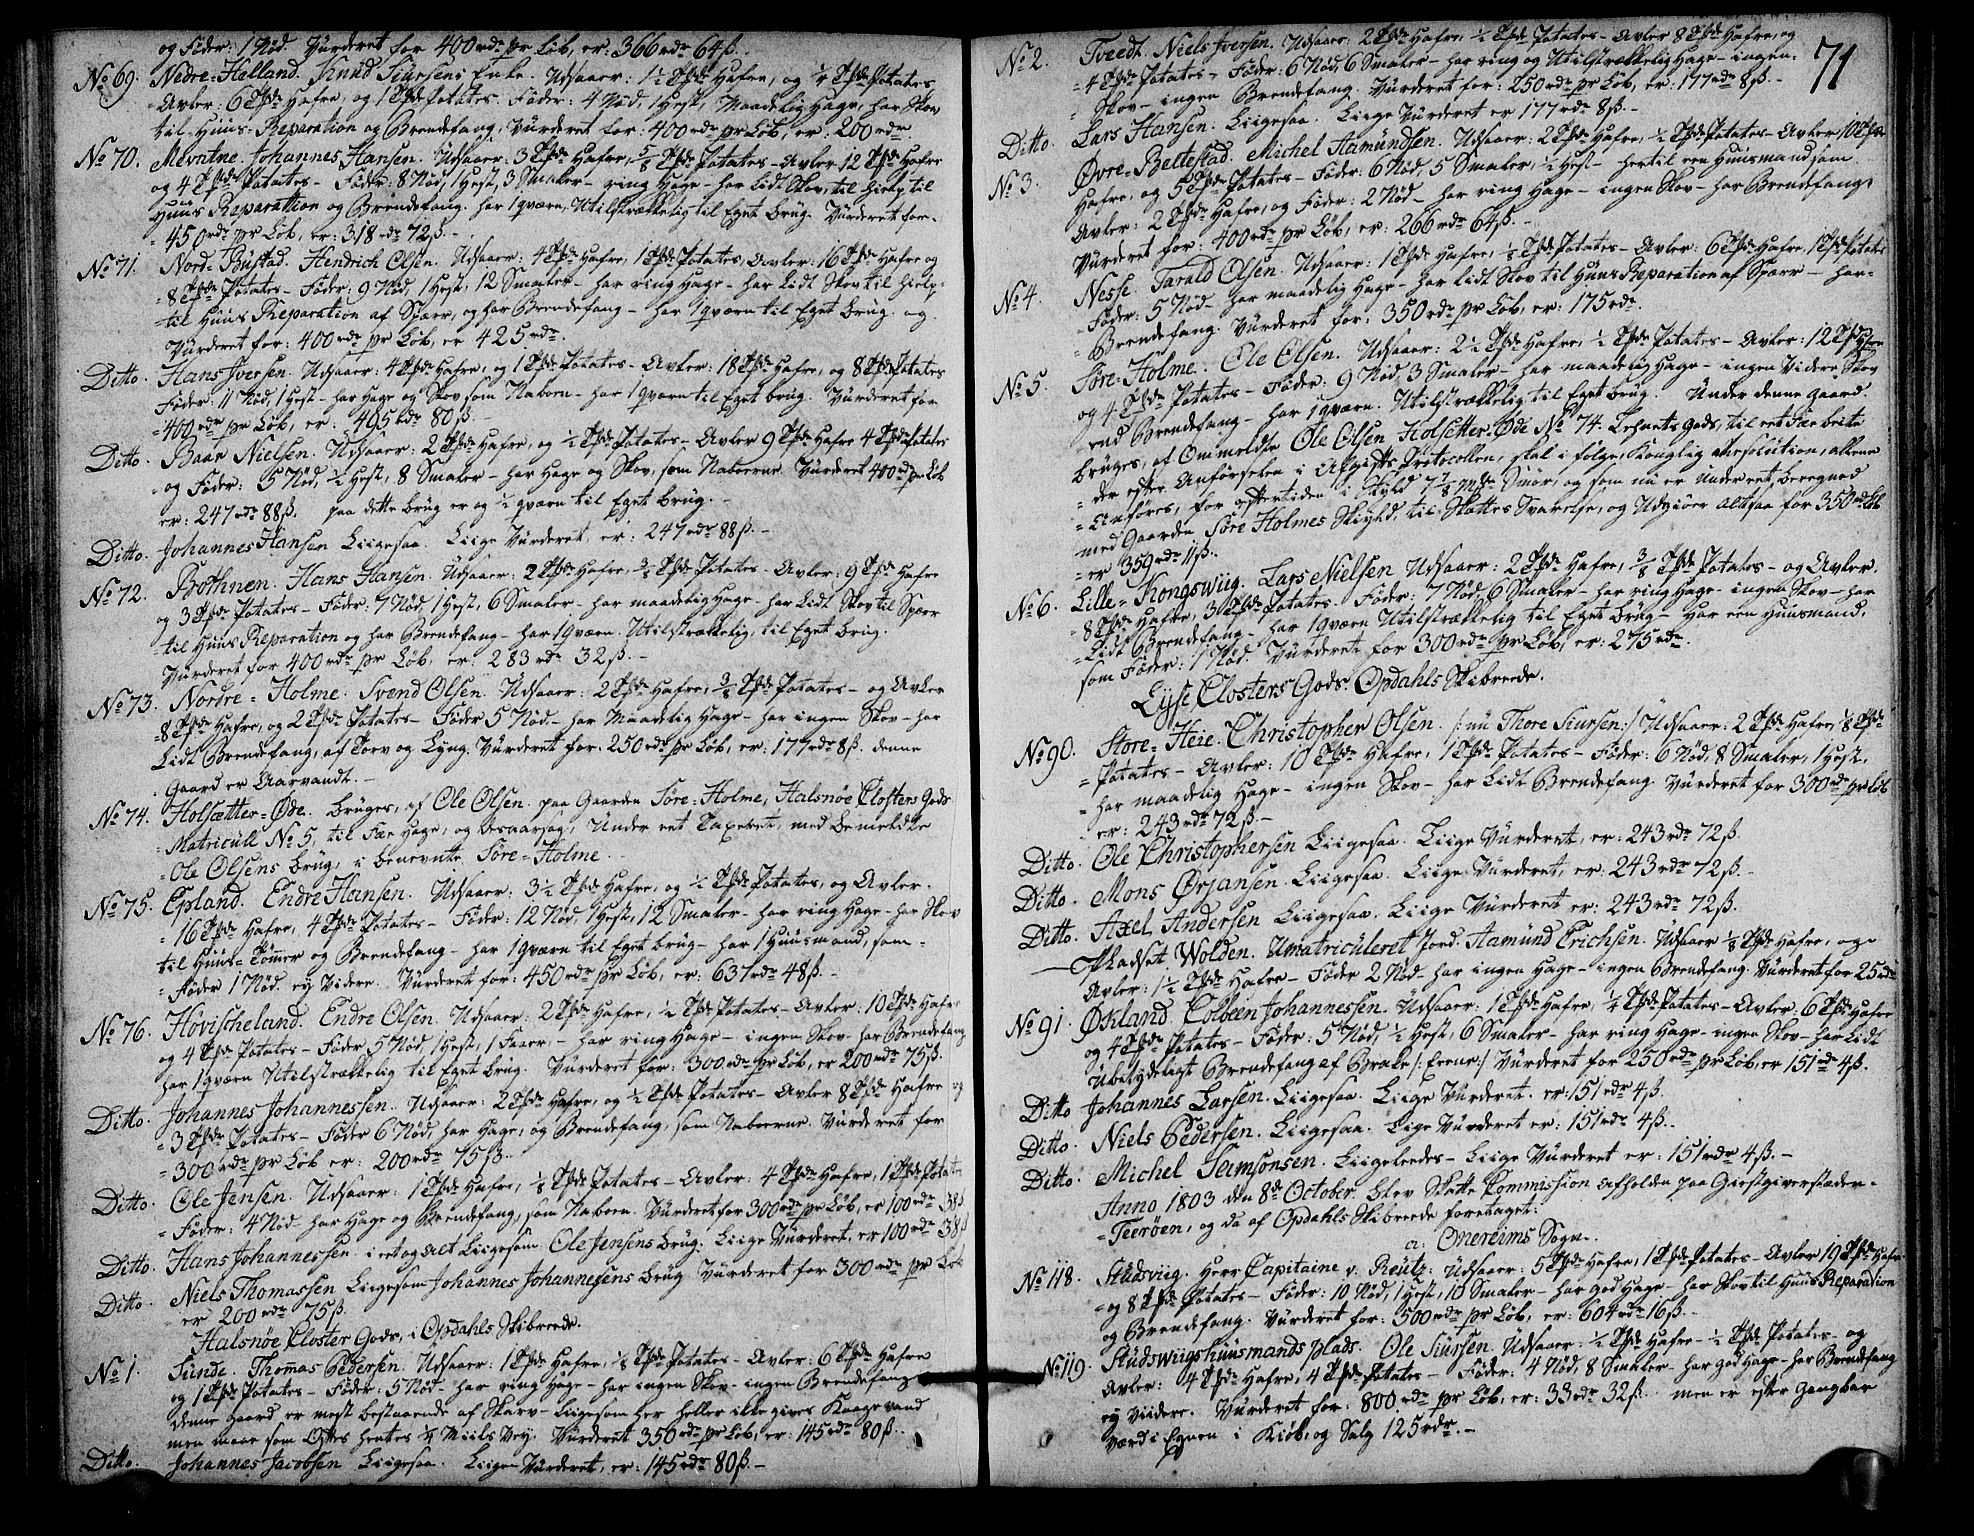 og Föder: 1 Nöd. Vurderet for 400 rdr pr Löb, er: 366 rdr 64 ß.
No 69. Nedre-Helland. Knud Siursens Enke. Udsaaer: 1½ Tpdr Hafre, og ¼ Tpdr Potates
Avler: 6 Tpdr Hafre, og 1 Tpdr Potates. Föder: 4 Nöd, 1 Hest, Maadelig Hage, har Skov
til Huus-Reparation og Brendefang, Vurderet for: 400 rdr pr Löb, er: 200 rdr
No 70. Mevatne. Johannes Hansen. Udsaaer: 3 Tpdr Hafre, 5/8 Tpdr Potates - Avler: 12 Tpdr Hafre
og 4 Tpdr Potates - Föder: 8 Nöd, 1 Hest, 3 Smaler - ring Hage - har Lidt Skov, til Hielp til
Huus Reparation og Brendefang. har 1 qværn, Utilstrækkelig til Eget brug. Vurderet for
450 rdr pr Löb, er: 318 rdr 72 ß.-
No 71. Nord-Bustad. Hendrich Olsen. Udsaaer: 4 Tpdr Hafre, 1 Tpdr Potates, Avler: 16 Tpdr Hafre og
8 Tpdr Potates - Föder: 9 Nöd, 1 Hest, 12 Smaler - har ring Hage - har Lidt Skov til Hielp
til Huus Reparation af Spærr, og har Brendefang - har 1 qværn til Eget brug. og
Vurderet for: 400 rdr pr Löb, er 425 rdr.
Ditto. Hans Iversen. Udsaaer: 4 Tpdr Hafre, og 1 Tpdr Potates - Avler: 18 Tpdr Hafre, og 8 Tpdr Potates
Föder: 11 Nöd, 1 Hest - har Hage og Skov som Naboen - har 1 qværn til Eget brug. Vurderet for
400 rdr pr Löb, er: 495 rdr 80 ß.
Ditto. Baar Nielsen. Udsaaer: 2 Tpdr Hafre, og ½ Tpdr Potates - Avler 9 Tpdr Hafre 4 Tpdr Potates
og Föder: 5 Nöd, ½ Hest, 8 Smaler - har Hage og Skov, som Naboerne. Vurderet 400 rdr pr Löb
er: 247 rdr 88 ß. paa dette brug er og ½ qværn til Eget brug.-
Ditto. Johannes Hansen Liigesaa. Liige Vurderet, er: 247 rdr 88 ß.-
No 72. Bothnen. Hans Hansen. Udsaaer: 2 Tpdr Hafre, 3/8 Tpdr Potates - Avler: 9 Tpdr Hafre
og 3 Tpdr Potates - Föder: 7 Nöd, 1 Hest, 6 Smaler - har maadelig Hage - har Lidt Skov til Spærr
til Huus Reparation og har Brendefang - har 1 qværn. Utilstrækkelig, til Eget brug.
Vurderet for 400 rdr pr Löb, er: 283 rdr 32 ß.-
No 73. Nordre-Holme. Svend Olsen. Udsaaer: 2 Tpdr Hafre, 3/8 Tpdr Potates - og Avler
8 Tpdr Hafre, og 2 Tpdr Potates - Föder 5 Nöd - har Maadelig Hage - har ingen Skov - har
Lidt Brendefang, af Torv og Lyng. Vurderet for: 250 rdr pr Löb, er: 177 rdr 8 ß. denne
Gaard er Aarvandt.-
No 74. Holsætter-Öde. bruges, af Ole Olsen. paa Gaarden Söre-Holme, Halsnöe Closters Gods
Matricull No 5, til Fæe Hage, og Besaarsag, Under eet Taxeret, med bemeldte
Ole Olsens brug, i benevnte Söre-Holme.
No 75. Epland. Endre Hansen. Udsaaer: 3½ Tpdr Hafre, og ½ Tpdr Potates, og Avler.
16 Tpdr Hafre, 4 Tpdr Potates - Föder: 12 Nöd, 1 Hest, 12 Smaler - har ring Hage - har Skov
til Huus-Tömmer og Brendefang - har 1 qværn til Eget brug - har 1 Huusmand, som-
Föder 1 Nöd. ey Videre. Vurderet for: 450 rdr pr Löb, er: 637 rdr 48 ß.-
No 76. Hovischeland. Endre Olsen. Udsaaer: 2 Tpdr Hafre, ½ Tpdr Potates - Avler: 10 Tpdr Hafre
og 4 Tpdr Potates - Föder 5 Nöd, 1 Hest, 1 Faaer, - har ring Hage - ingen Skov - har Brendefang
har 1 qværn Utilstrækkelig til Eget brug. Vurderet for: 300 rdr pr Löb, er 200 rdr 75 ß.
Ditto. Johannes Johannessen. Udsaaer: 2 Tpdr Hafre, og ½ Tpdr Potates - Avler 8 Tpdr Hafre og
3 Tpdr Potates - Föder 6 Nöd, har Hage, og Brendefang, som Naboerne. Vurderet for
300 rdr pr Löb er: 200 rdr 75 ß.
Ditto. Ole Jensen. Udsaaer: 1 Tpdr Hafre, 1/8 Tpdr Potates - Avler: 4 Tpdr Hafre, 1 Tpdr Potates
Föder: 4 Nöd har Hage og Brendefang, som Naboen. Vurderet for 300 rdr pr Löb, er 100 rdr 38 ß
Ditto. Hans Johannessen. i eet og alt Liigesom Ole Jensens brug. Liige Vurderet, er 100 rdr 38 ß
Ditto. Niels Thomassen Liigesom Johannes Johannesens brug Vurderet for 300 rdr pr Löb
er 200 rdr 75 ß.
Halsnöe Closter Gods, i Opdahls Skibreede.
No 1. Sunde. Thomas Pedersen. Udsaaer: 1 Tpdr Hafre, 1/8 Tpdr Potates - Avler: 6 Tpdr Hafre
og 1 Tpdr Potates - Föder: 5 Nöd - har ring Hage - har ingen Skov - ingen Brendefang
denne Gaard er mest bestaaende af Skarv - Liigesom her heller ikke gives Kaage vand
men maae som Oftes hentes ¼ Miils Vey. Vurderet 350 rdr pr Löb, er: 145 rdr 80 ß.
Ditto. Johannes Jacobsen Liigesaa. Liige Vurderet, er: 145 rdr 80 ß.-
71
No 2. Tveedt. Niels Iversen. Udsaaer: 2 Tpdr Hafre, ½ Tpdr Potates - Avler 8 Tpdr Hafre, og
4 Tpdr Potates - Föder: 6 Nöd, 6 Smaler - har ring og Utilstrækkelig Hage - ingen
Skov - ingen Brendefang - Vurderet for: 250 rdr pr Löb, er: 177 rdr 8 ß.-
Ditto. Lars Hansen. Liigesaa. Liige Vurderet er 177 rdr 8 ß.-
No 3. Övre-Beltestad. Michel Aamundsen. Udsaaer: 2 Tpdr Hafre, ½ Tpdr Potates - Avler 10 Tpdr
Hafre, og 5 Tpdr Potates - Föder: 6 Nöd, 5 Smaler, ½ Hest - hertil een Huusmand som
Avler: 2 Tpdr Hafre, og Föder: 2 Nöd - har ring Hage - ingen Skov - har Brendefang
Vurderet for: 400 rdr pr Löb, er: 266 rdr 64 ß.-
No 4. Nesse. Tarald Olsen. Udsaaer: 1 Tpdr Hafre, ½ Tpdr Potates - Avler: 6 Tpdr Hafre, 1 Tpdr Potates
Föder: 5 Nöd - har maadelig Hage - har Lidt Skov til Huus Reparation af Spærr - har
Brendefang. Vurderet for: 350 rdr pr Löb, er: 175 rdr.
No 5. Söre-Holme. Ole Olsen. Udsaaer: 2½ Tpdr Hafre, ½ Tpdr Potates - Avler: 12 Tpdr Hafre
og 4 Tpdr Potates - Föder: 9 Nöd, 3 Smaler - har maadelig Hage - ingen Videre Skov
end Brendefang - har 1 qværn. Utilstrækkelig til Eget brug. Under denne Gaard.
bruges, af Ommeldte Ole Olsen Holsetter-Öde No 74. Gods, til eet Fæe beite
der efter Anförselen i Protocollen, skal i fölge, Konglig Resolution, allene
Anföres, for eftertiden i Skyld 7 1/8 mdr Smör, og som nu er Under eet, beregned
med Gaarden Söre Holmes Skyld, til Skatters Svarelse, og Udgiör altsaa for 350 rdr Löb
er 359 rdr 11 ß.
No 6. Lille-Kongswiig. Lars Nielsen Udsaaer: 2 Tpdr Hafre, 3/8 Tpdr Potates - og Avler.
8 Tpdr Hafre, 3 Tpdr Potates - Föder: 7 Nöd, 6 Smaler - har ring Hage - ingen Skov - har
Lidt Brendefang - har 1 qværn Utilstrækkelig til Eget brug - har een Huusmand,
som Föder: 1 Nöd. Vurderet for 300 rdr pr Löb, er: 275 rdr.
Lyse Closters Gods. Opdahls Skibreede.
No 90. Store-Heie. Christopher Olsen. /: nu Thore Siursen :/ Udsaaer: 2 Tpdr Hafre, 1/8 Tpdr
Potates - Avler: 10 Tpdr Hafre, 1 Tpdr Potates - Föder: 6 Nöd, 8 Smaler, 1 Hest,
har maadelig Hage - ingen Skov - har Lidt Brendefang. Vurderet for 300 rdr pr Löb
er: 243 rdr 72 ß.-
Ditto. Ole Christophersen Liigesaa. Liige Vurderet, er: 243 rdr 72 ß.
Ditto. Mons Örjansen. Liigesaa. Liige Vurderet, er: 243 rdr 72 ß.-
Ditto. Axel Andersen Liigesaa. Liige Vurderet er: 243 rdr 72 ß.
Pladset Wolden. Umatriculeret Jord. Aamund Erichsen. Udsaaer 1/8 Tpdr Hafre, og
Avler: 1½ Tpdr Hafre - Föder 2 Nöd - har ingen Hage - ingen Brendefang. Vurderet for 25 rdr
No 91. Ökland. Colbeen Johannessen. Udsaaer: 1 Tpdr Hafre, ¼ Tpdr Potates - Avler: 6 Tpdr Hafre
og 4 Tpdr Potates - Föder: 5 Nöd, ½ Hest, 6 Smaler - har ring Hage - ingen Skov - har Lidt
Ubetydeligt Brendefang af Brake /: Eene :/ Vurderet for 250 rdr pr Löb, er 151 rdr 4 ß.
Ditto Johannes Larsen. Liigesaa. Liige Vurderet. er: 151 rdr 4 ß.
Ditto. Niels Pedersen. Liigesaa. Lige Vurderet er: 151 rdr 4 ß.
Ditto. Michel Samsonsen. Liigeleedes - Liige Vurderet er: 151 rdr 4 ß.-
Anno 1803 den 8de October. blev Skatte Commission afholden paa Giestgiverstæden-
Teeröen, og da af Opdahls Skibreede foretaget:
a: Onereims Sogn.
No 118. Studsviig. Herr Capitaine v. Reutz: Udsaaer: 5 Tpdr Hafre, 1 Tpdr Potates - Avler 19 Tpdr Hafre
og 8 Tpdr Potates - Föder: 10 Nöd, 1 Hest, 10 Smaler - har god Hage - har Skov til Huus Reparation
og Brendefang. Vurderet for: 500 rdr pr Löb, er: 604 rdr 16 ß.-
No 119. Studswiigs huusmands plads. Ole Siursen. Udsaaer: ½ Tpdr Hafre - ½ Tpdr Potates - og
Avler: 4 Tpdr Hafre, 4 Tpdr Potates - Föder: 4 Nöd, 8 Smaler - har god Hage - har Brendefang
ey Viidere. Vurderet for: 800 rdr pr Löb, er: 33 rdr 32 ß. men er efter Gangbar
Værd i Egnen i Kiöb, og Salg 125 rdr.-